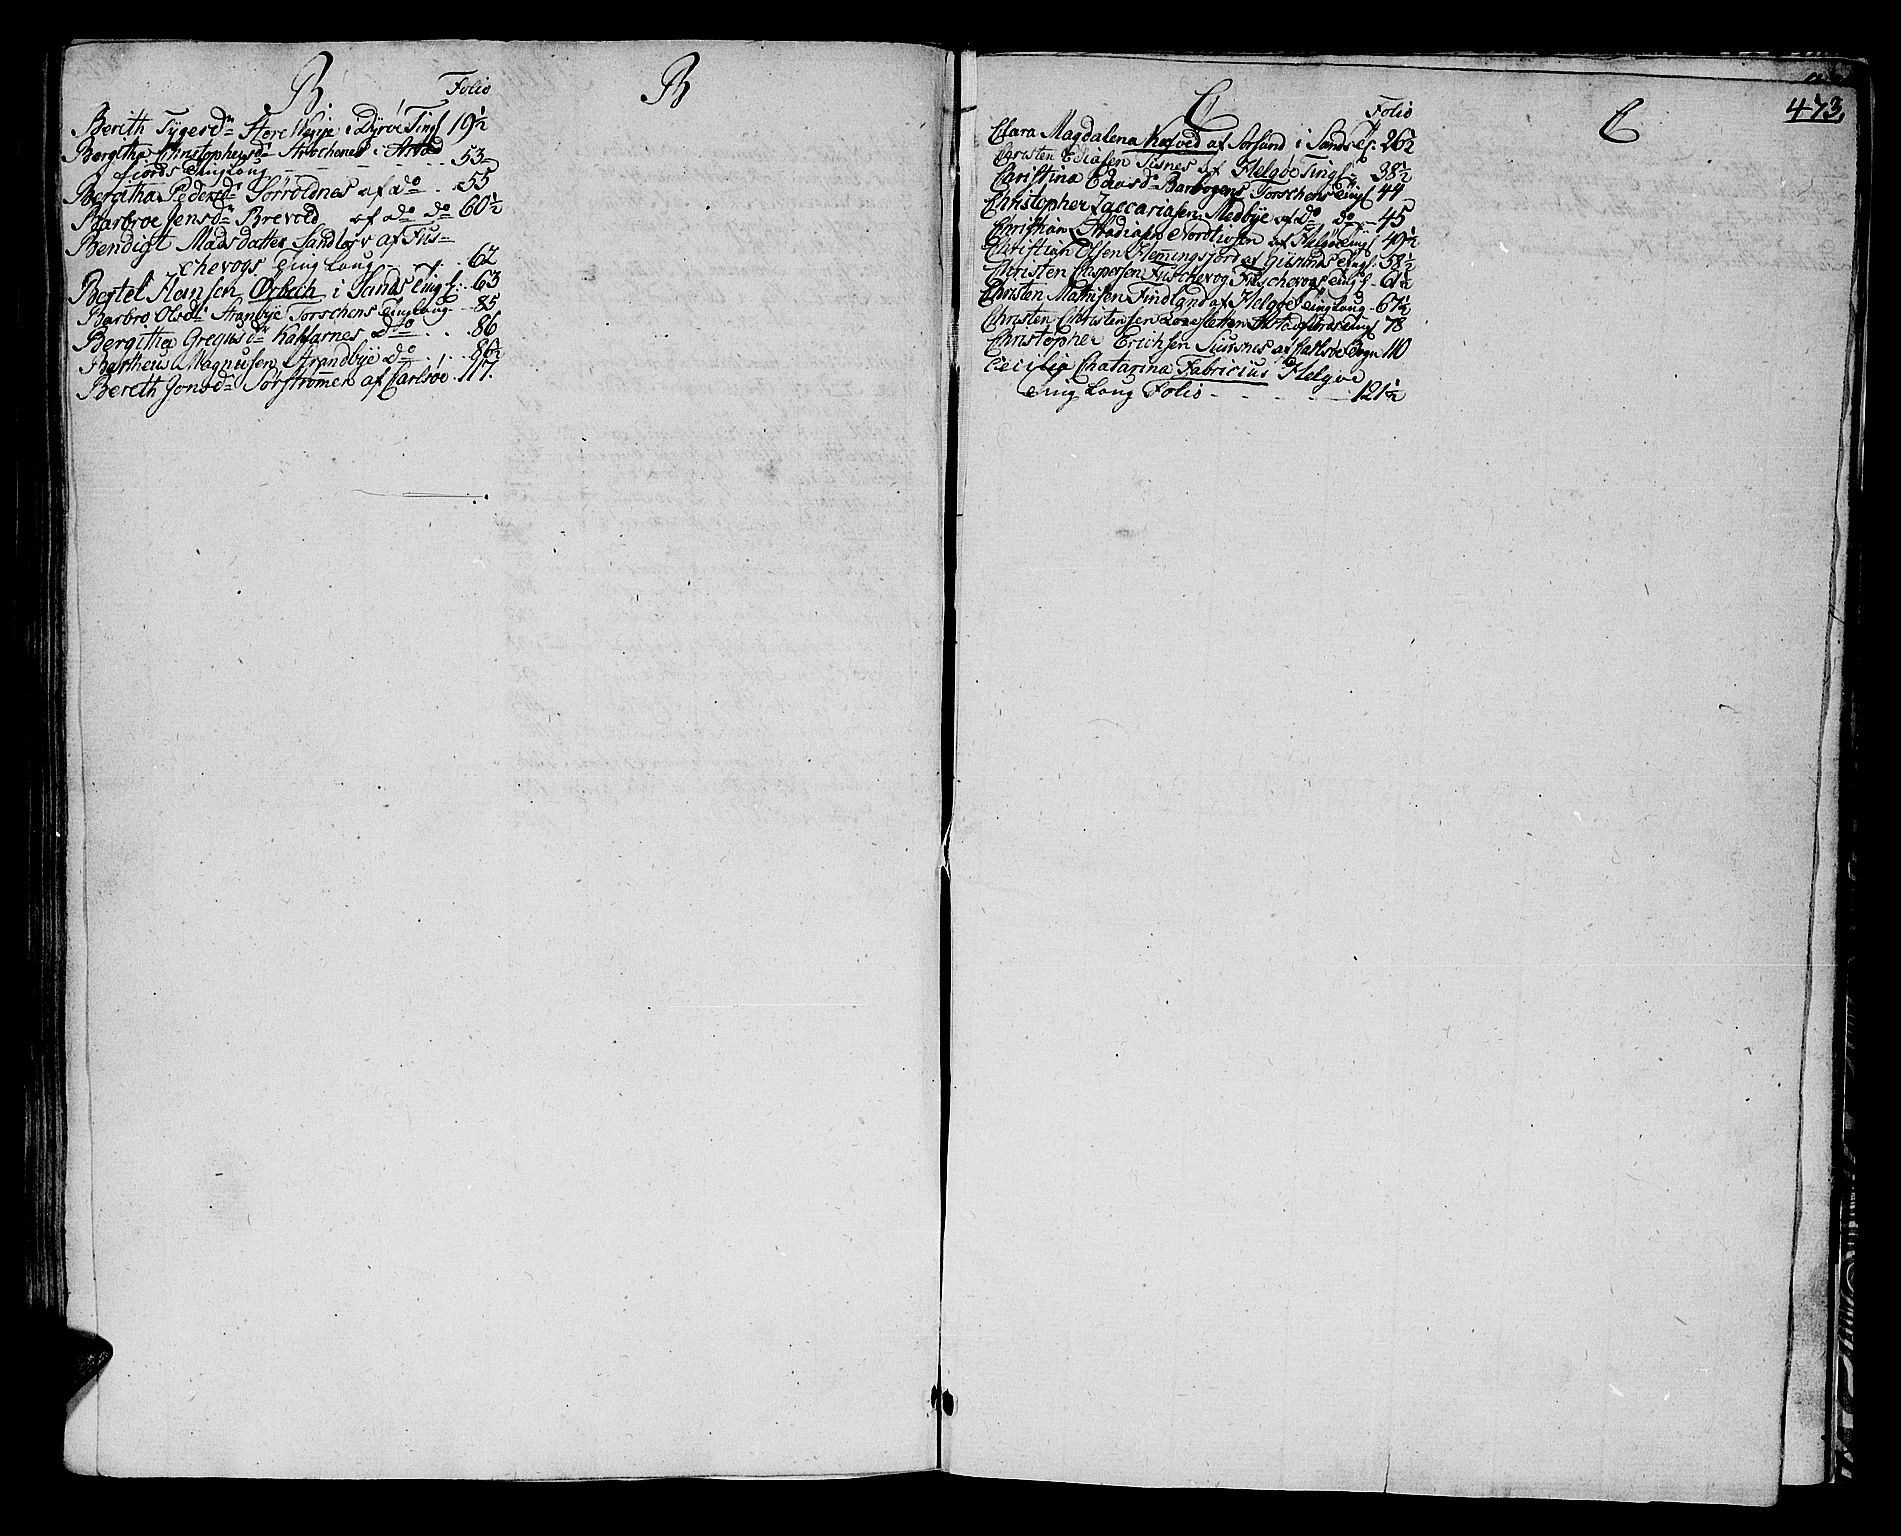 B
Folio
Berith Tygersdr Store Wigje i Dyrøe Tingl 19½
Bergitha Christophersdr Strochenes Astad
Fiords Tinglaug 53
Bergitha Pedersdr Sørroldnes af do 55
Barbroe Jensdr Brevold af do do 60½
Bendigt Madsdatter Sandløv af Fus-
chevogs Tinglaug 62
Bertel Hansen Ørbech i Sands Tingl: 63
Barbro Olsdr Stranbye Torschens Tinglaug 85
Bergitha Gregusdr Kaldarnes do 86
Bartheus Magnusen Strandbye do 86½
Bereth Jonsdr Sørstrømen af Carlsøe 117.
B
C
Folio
Clara Magdalena Kofved af Sørsund i Sands Tl: 26½
Christen Ediasen Tusnes af Helgøe Tingl 38½
Christina Edisdr Barbogens Torschens Tingl 44
Christopher Zaccariasen Medbye af do do 45
Christian Nordtiosen af Helgøe Tingl 49½
Christian Olsen Flemingsford af Gisunds Tingl 58½
Christen Caspersen Fuschevog Fuschevogs Tingl 61½
Christen Mathisen Findland af Helgøe Tinglaug 67½
Christen Christensen Løvesletten Astadfiords Tingl 78
Christopher Erichsen Tusnes af Carlsøe Sogn 110
Cecilia Chatarina Fabricius Helgøe
Tinglaug Folio 121½
C
473.